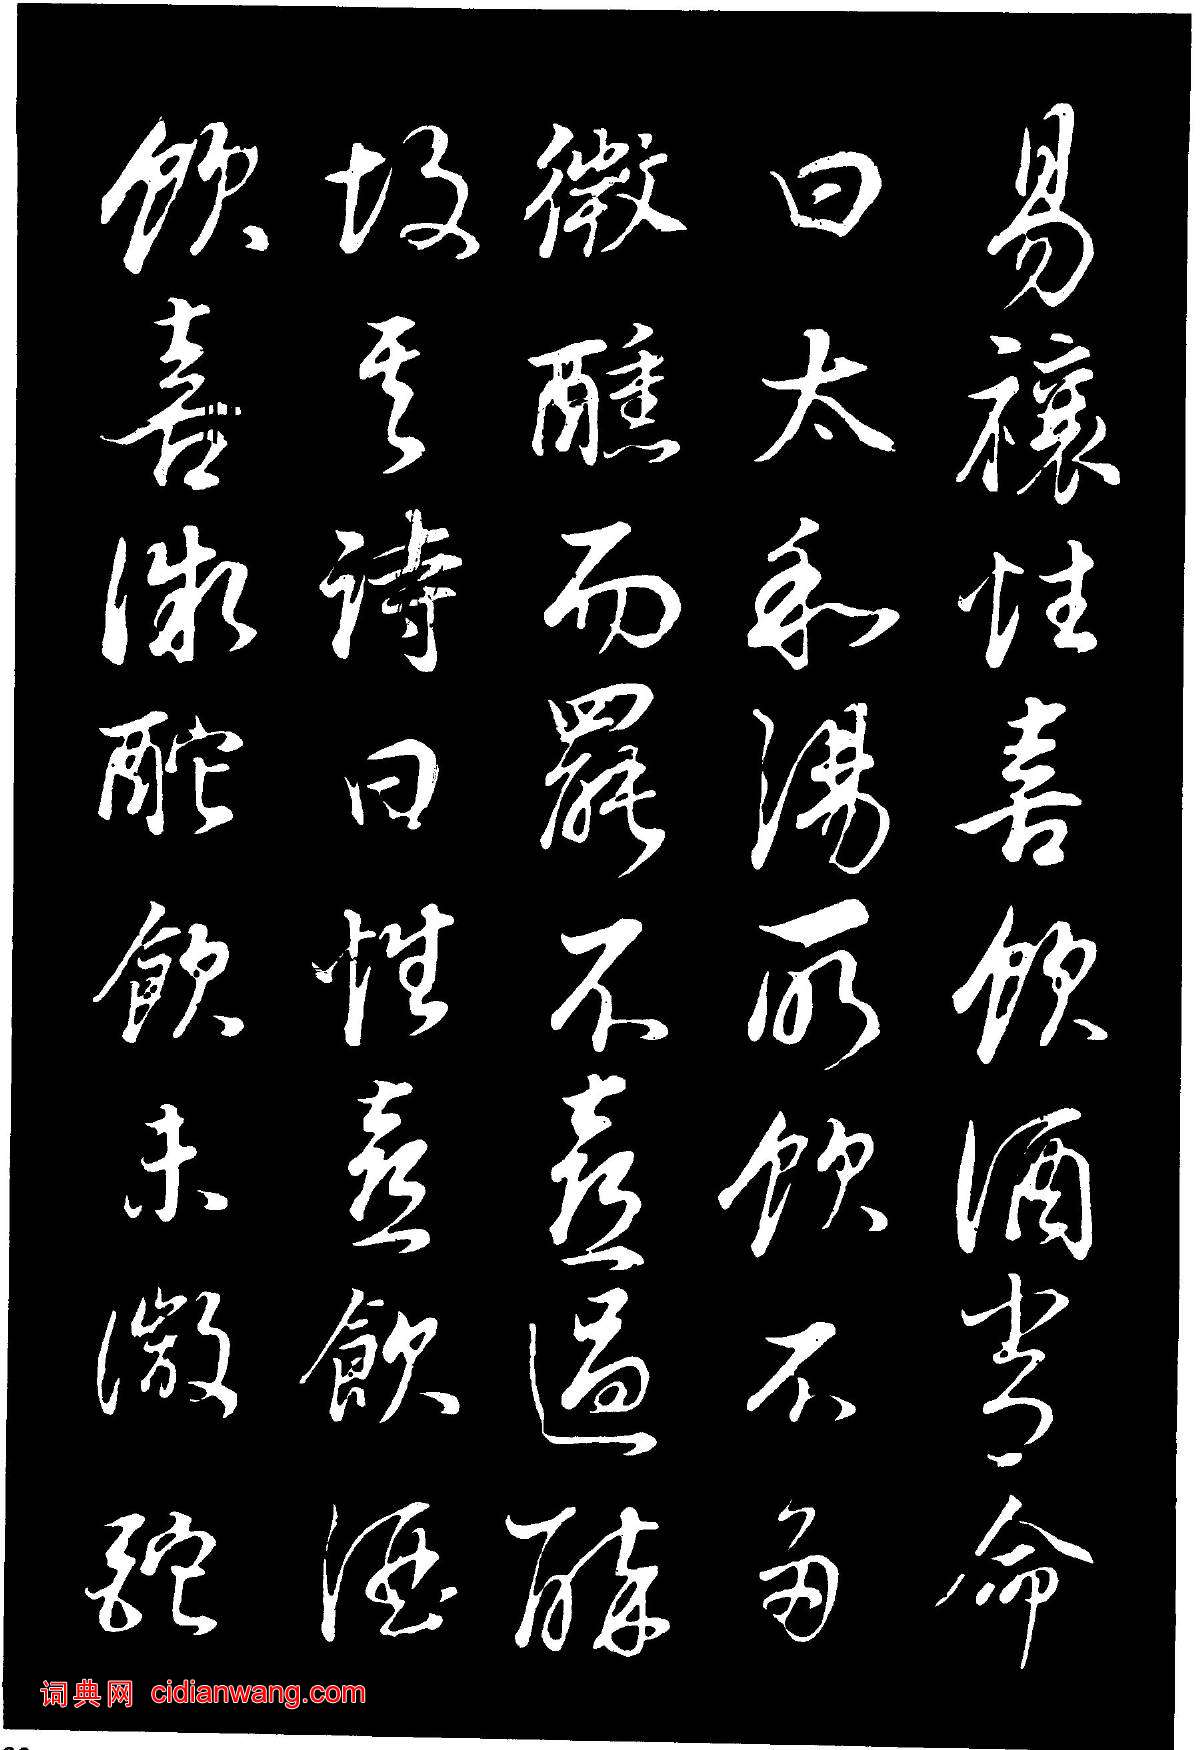 易禳性喜飲酒嘗命
曰太和湯所飲不多
微醺而罷不喜過醉
故其詩曰性喜飲酒
飲喜微酡飲未微酡
词典网 cidianwang.com